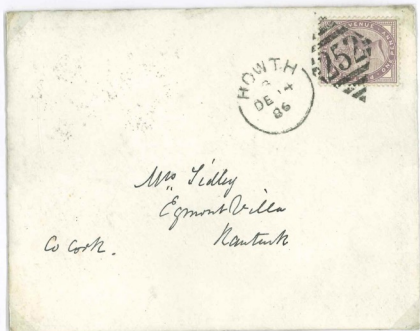 HOWTH
DE 14
86
252
Mrs Sidley
Egmont Villa
Kanturk
Co Cork.